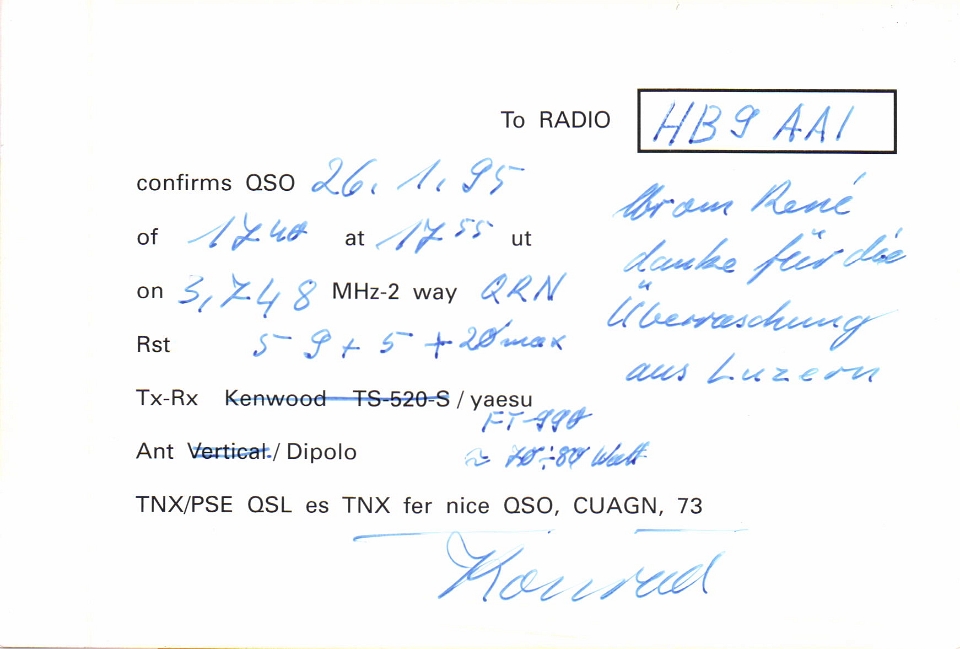 To RADIO HB9AAI
confirms QSO 26.1.95
of 1740 at 1755 ut
on 3,748 MHz-2 way QRN
Rst 59+5 +20 max
Tx-Rx Kenwood TS-520-S / yaesu
FT-990
Ant Vertical. / Dipolo ~ 70÷80 Watt
TNX/PSE QSL es TNX fer nice QSO, CUAGN, 73
Konrad
René
danke für die
Überraschung
aus Luzern